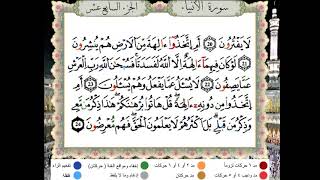 سورة الأنبياء
الجزء السابع عشر
لَا يَفْتُرُونَ ٢٠ أَمِ ٱتَّخَذُوٓا۟ ءَالِهَةً مِّنَ ٱلْأَرْضِ هُمْ يُنشِرُونَ
٢١ لَوْ كَانَ فِيهِمَآ ءَالِهَةٌ إِلَّا ٱللَّهُ لَفَسَدَتَا فَسُبْحَٰنَ ٱللَّهِ رَبِّ ٱلْعَرْشِ
عَمَّا يَصِفُونَ ٢٢ لَا يُسْـَٔلُ عَمَّا يَفْعَلُ وَهُمْ يُسْـَٔلُونَ ٢٣ أَمِ
ٱتَّخَذُوا۟ مِن دُونِهِۦٓ ءَالِهَةً قُلْ هَاتُوا۟ بُرْهَٰنَكُمْ هَٰذَا ذِكْرُ مَن مَّعِىَ
وَذِكْرُ مَن قَبْلِى بَلْ أَكْثَرُهُمْ لَا يَعْلَمُونَ ٱلْحَقَّ فَهُم مُّعْرِضُونَ ٢٤